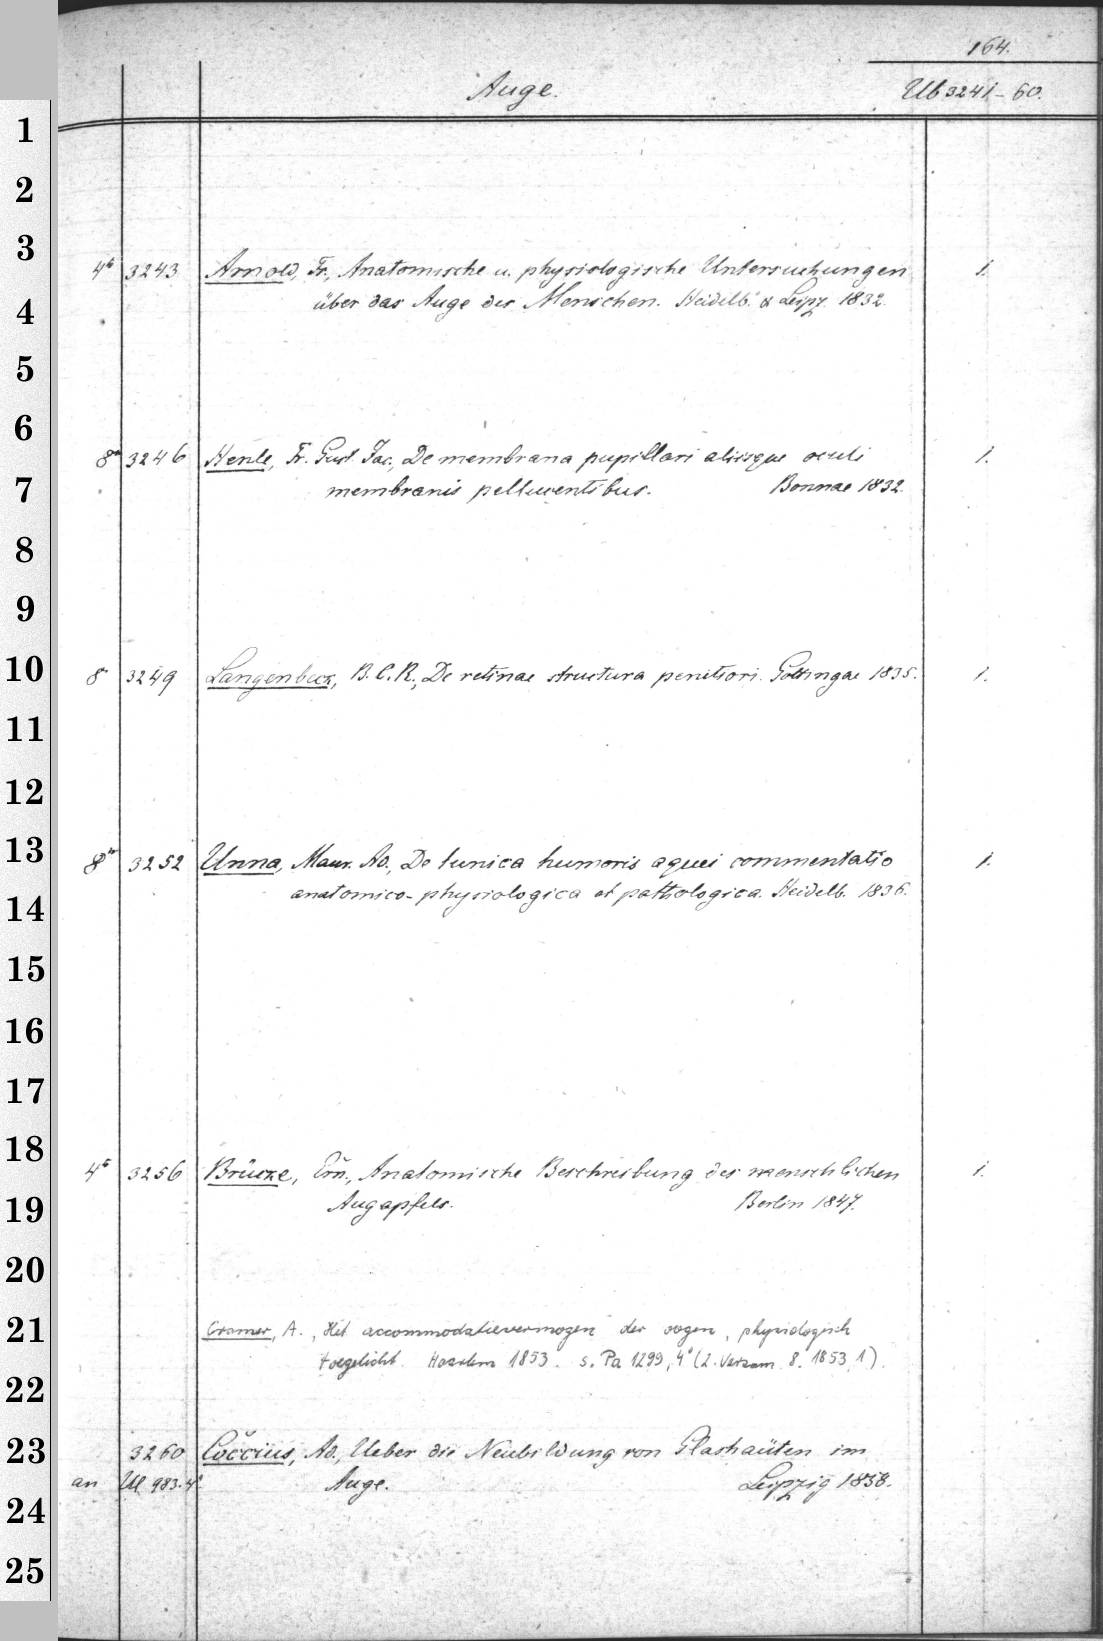 164.
Auge. Ub 3241-60.
1
2
3
4º 3243 Arnold, Fr., Anatomische u. physiologische Untersuchungen 1.
4 über das Auge des Menschen. Heidelb. & Leipz. 1832.
5
6
8º 3246 Henle, Fr. Gust. Jac., De membrana pupillari aliisque oculi 1.
7 membranis pellucentibus. Bonnae 1832.
8
9
10 8º 3249 Langenbeck, B. C. R., De retinae structura penitiori. Gottingae 1835. 1.
11
12
13 8º 3252 Unna, Maur. Ad., De tunica humoris aquei commentatio 1.
14 anatomico-physiologica et pathologica. Heidelb. 1836.
15
16
17
18 4º 3256 Brücke, Ern., Anatomische Beschreibung des menschlichen 1.
19 Augapfels. Berlin 1847.
20
21 Cramer, A., Het accommodatievermogen der oogen, physiologisch
toegelicht. Haarlem 1853. s. Pa 1299, 4º (2. Verzam. 8. 1853, 1).
22
23 3260 Coccius, Ad., Ueber die Neubildung von Glashäuten im
an Ul 983. 4º. Auge. Leipzig 1858.
24
25